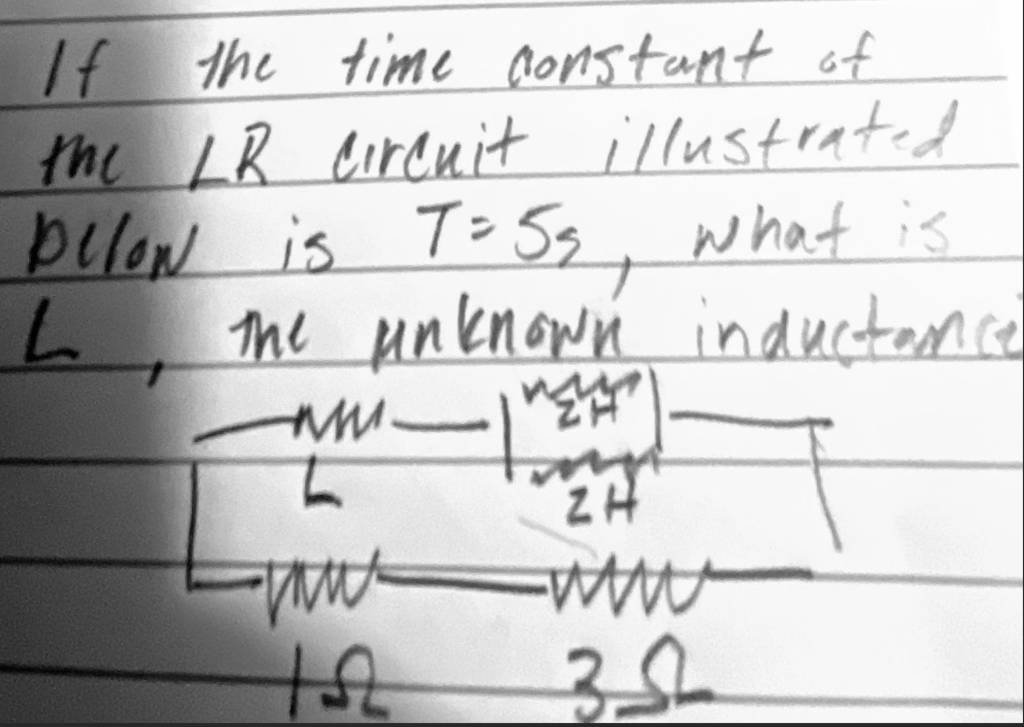 If the time constant of
the LR circuit illustrated
below is T = 5s, what is
L, the unknown inductance
2H
L
2H
1Ω 3Ω